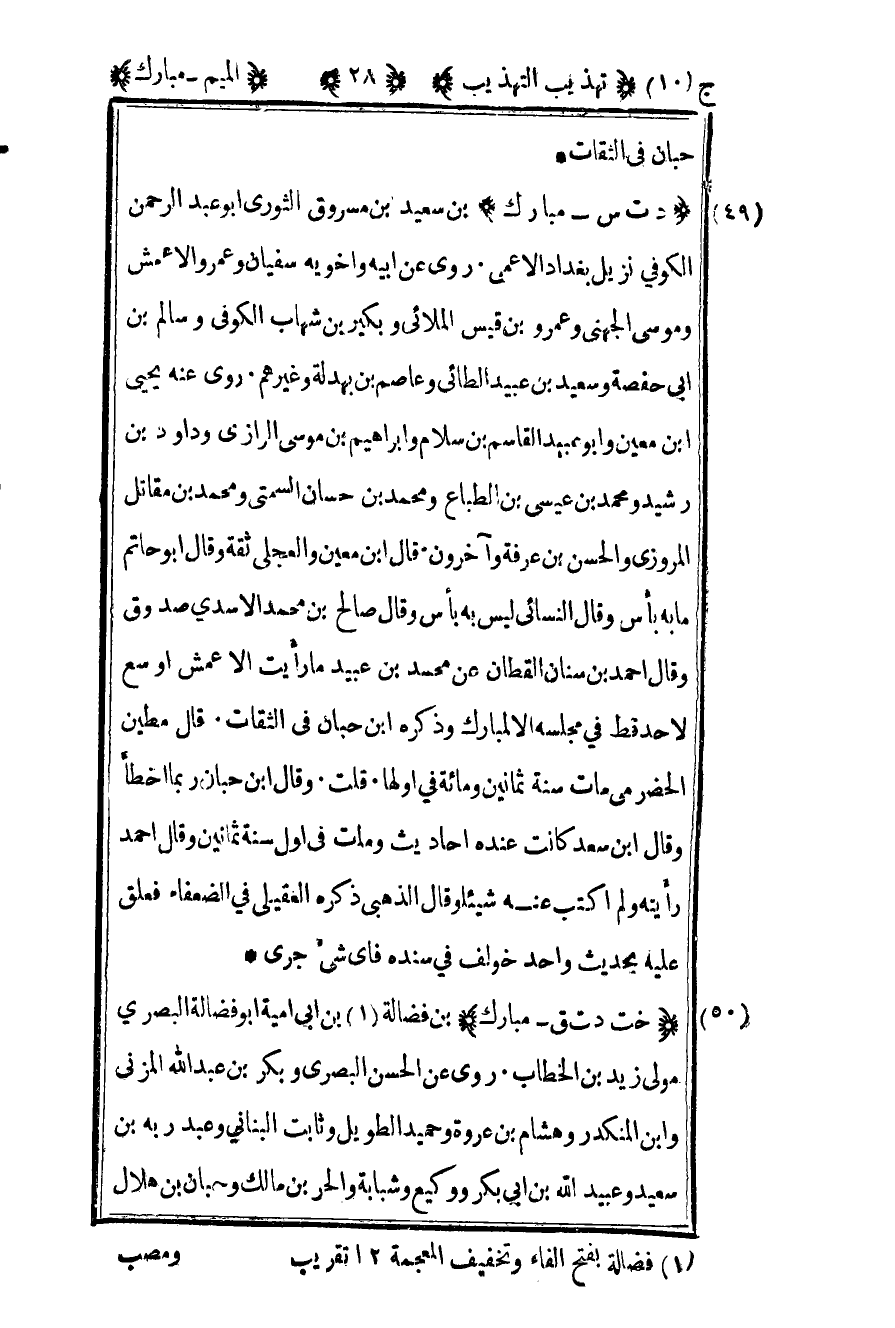 ج (١٠) ﴿ تهذيب التهذيب ﴾ ﴿ ٢٨ ﴾ ﴿ الميم - مبارك ﴾
حبان فى الثقات •
(٤٩) ﴿ د ت س - مبارك ﴾ بن سعيد بن مسروق الثورى ابو عبد الرحمن
الكوفي نزيل بغداد الاعمى · روى عن ابيه واخويه سفيان وعمر والاعمش
وموسى الجهنى وعمرو بن قيس الملائى و بكير بن شهاب الكوفى و سالم بن
ابي حفصة وسعيد بن عبيد الطائى وعاصم بن بهدلة وغيرهم · روى عنه يحيى
ابن معين وابو عبيد القاسم بن سلام وابراهيم بن موسى الرازى وداود بن
رشيد ومحمد بن عيسى بن الطباع ومحمد بن حسان السمتى ومحمد بن مقاتل
المروزى والحسن بن عرفة وآخرون · قال ابن معين والعجلى ثقة وقال ابو حاتم
ما به بأس وقال النسائى ليس به بأس وقال صالح بن محمد الاسدي صدوق
وقال احمد بن سنان القطان عن محمد بن عبيد ما رأيت الاعمش اوسع
لاحد قط في مجلسه الا لمبارك وذكره ابن حبان فى الثقات · قال مطين
الحضرمى مات سنة ثمانين ومائة في اولها · قلت · وقال ابن حبان ربما اخطأ
وقال ابن سعد كانت عنده احاديث ومات فى اول سنة ثمانين وقال احمد
رأيته ولم اكتب عنه شيئا وقال الذهبى ذكره العقيلى في الضعفاء فعلق
عليه بحديث واحد خولف في سنده فاى شىء جرى •
(٥٠) ﴿ خت د ت ق - مبارك ﴾ بن فضالة (١) بن ابى امية ابو فضالة البصري
مولى زيد بن الخطاب · روى عن الحسن البصرى و بكر بن عبد الله المزنى
وابن المنكدر وهشام بن عروة وحميد الطويل وثابت البناني وعبد ربه بن
سعيد وعبيد الله بن ابي بكر ووكيع وشبابة والحر بن مالك وحبان بن هلال
(١) فضالة بفتح الفاء وتخفيف المعجمة ١٢ تقريب
ومصب